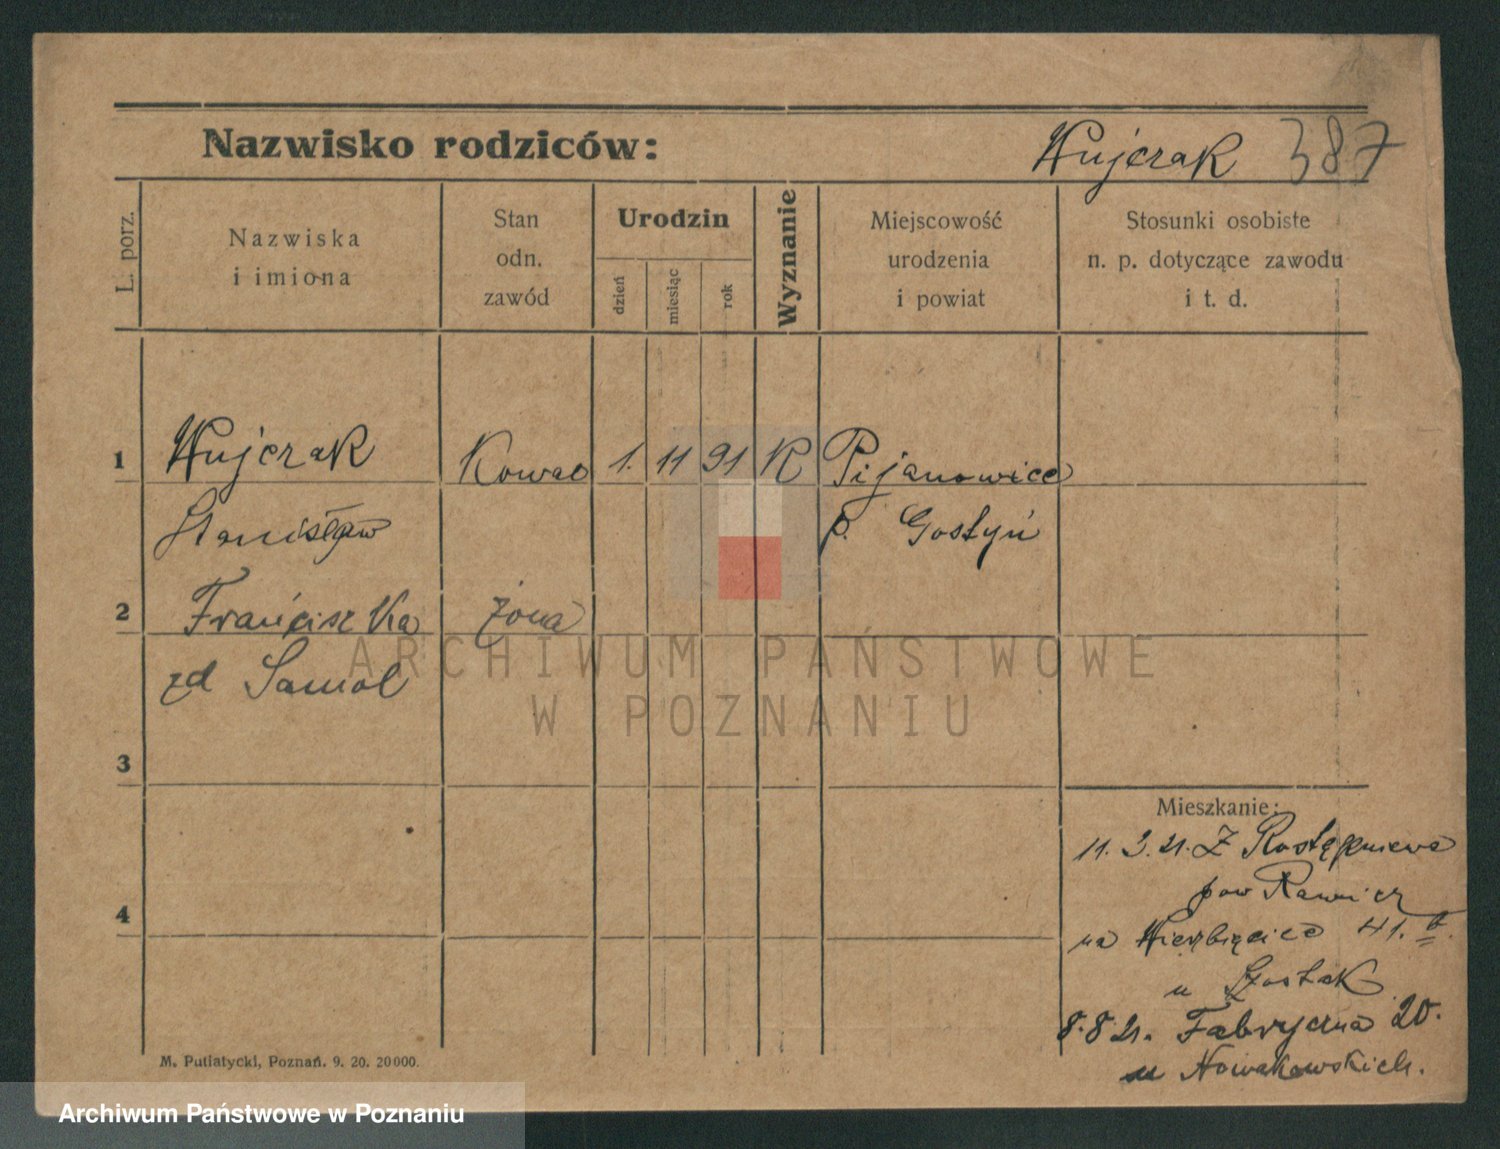 Nazwisko rodziców: Wujczak 387
L. porz.
Nazwiska
i imiona
Stan
odn.
zawód
Urodzin
dzień
miesiąc
rok
Wyznanie
Miejscowość
urodzenia
i powiat
Stosunki osobiste
n. p. dotyczące zawodu
i t. d.
1 Wujczak Kowal 1. 11 91 K Pijanowice
Stanisław p. Gostyń
2 Franciszka żona
zd Samol
3
4
Mieszkanie:
11. 3. 21. Z Rostępniewa
pow Rawicz
na Wierzbięcice 41. b.
u Szostak
8.8 21. Fabryczna 20.
u Nowakowskich.
M. Putiatycki, Poznań. 9. 20. 20000.
ARCHIWUM PAŃSTWOWE
W POZNANIU
Archiwum Państwowe w Poznaniu